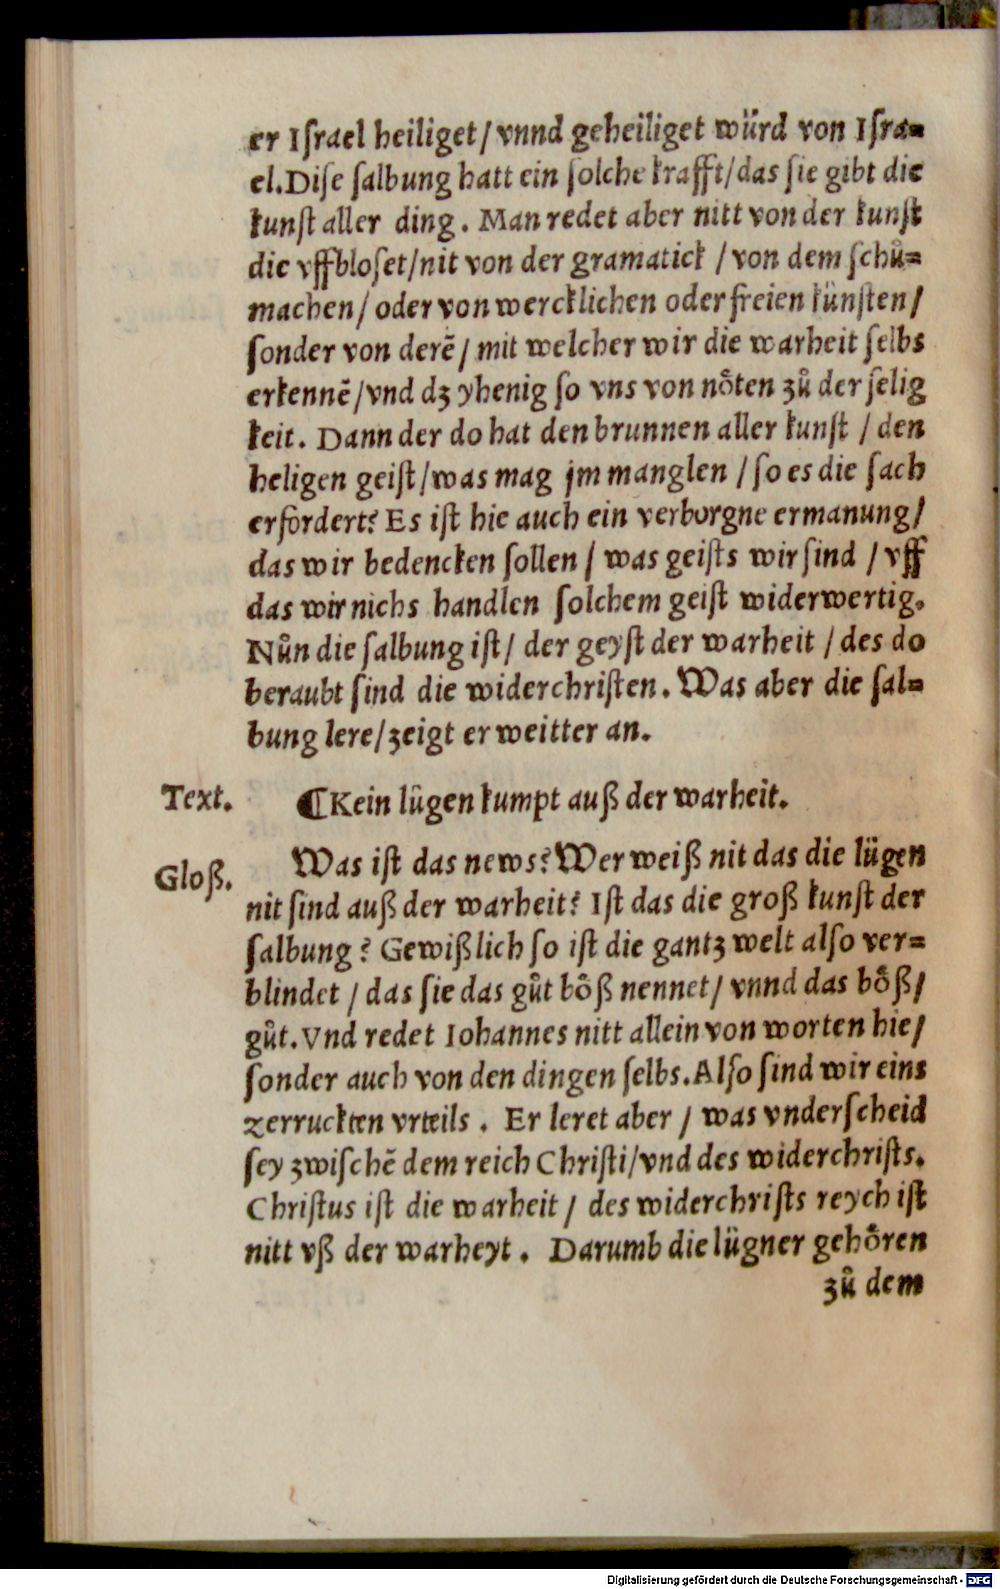 er Iſrael heiliget/vnnd geheiliget würd von Iſra=
el.Diſe ſalbung hatt ein ſolche krafft/das ſie gibt die
kunſt aller ding. Man redet aber nitt von der kunſt
die vffbloſet/nit von der gramatick /von dem ſchů=
machen/ oder von wercklichen oder freien künſten/
ſonder von derē/ mit welcher wir die warheit ſelbs
erkennē/vnd dʒ yhenig ſo vns von nöten zů der ſelig
keit. Dann der do hat den brunnen aller kunſt /den
heligen geiſt/was mag jm manglen /ſo es die ſach
erfordert? Es iſt hie auch ein verborgne ermanung/
das wir bedencken ſollen/ was geiſts wir ſind /vff
das wir nichs handlen ſolchem geiſt widerwertig.
Nůn die ſalbung iſt/ der geyſt der warheit /des do
beraubt ſind die widerchriſten. Was aber die ſal=
bung lere/zeigt er weitter an.
Text. ¶Kein lügen kumpt auß der warheit.
Gloß. Was iſt das news? Wer weiß nit das die lügen
nit ſind auß der warheit? Iſt das die groß kunſt der
ſalbung? Gewißlich ſo iſt die gantz welt alſo ver=
blindet /das ſie das gůt böß nennet/ vnnd das böß/
gůt.Vnd redet Iohannes nitt allein von worten hie/
ſonder auch von den dingen ſelbs.Alſo ſind wir eins
zerruckten vrteils. Er leret aber / was vnderſcheid
ſey zwiſchē dem reich Chriſti/vnd des widerchriſts.
Chriſtus iſt die warheit / des widerchriſts reych iſt
nitt vß der warheyt. Darumb die lügner gehören
zů dem
Digitalisierung gefördert durch die Deutsche Forschungsgemeinschaft - DFG